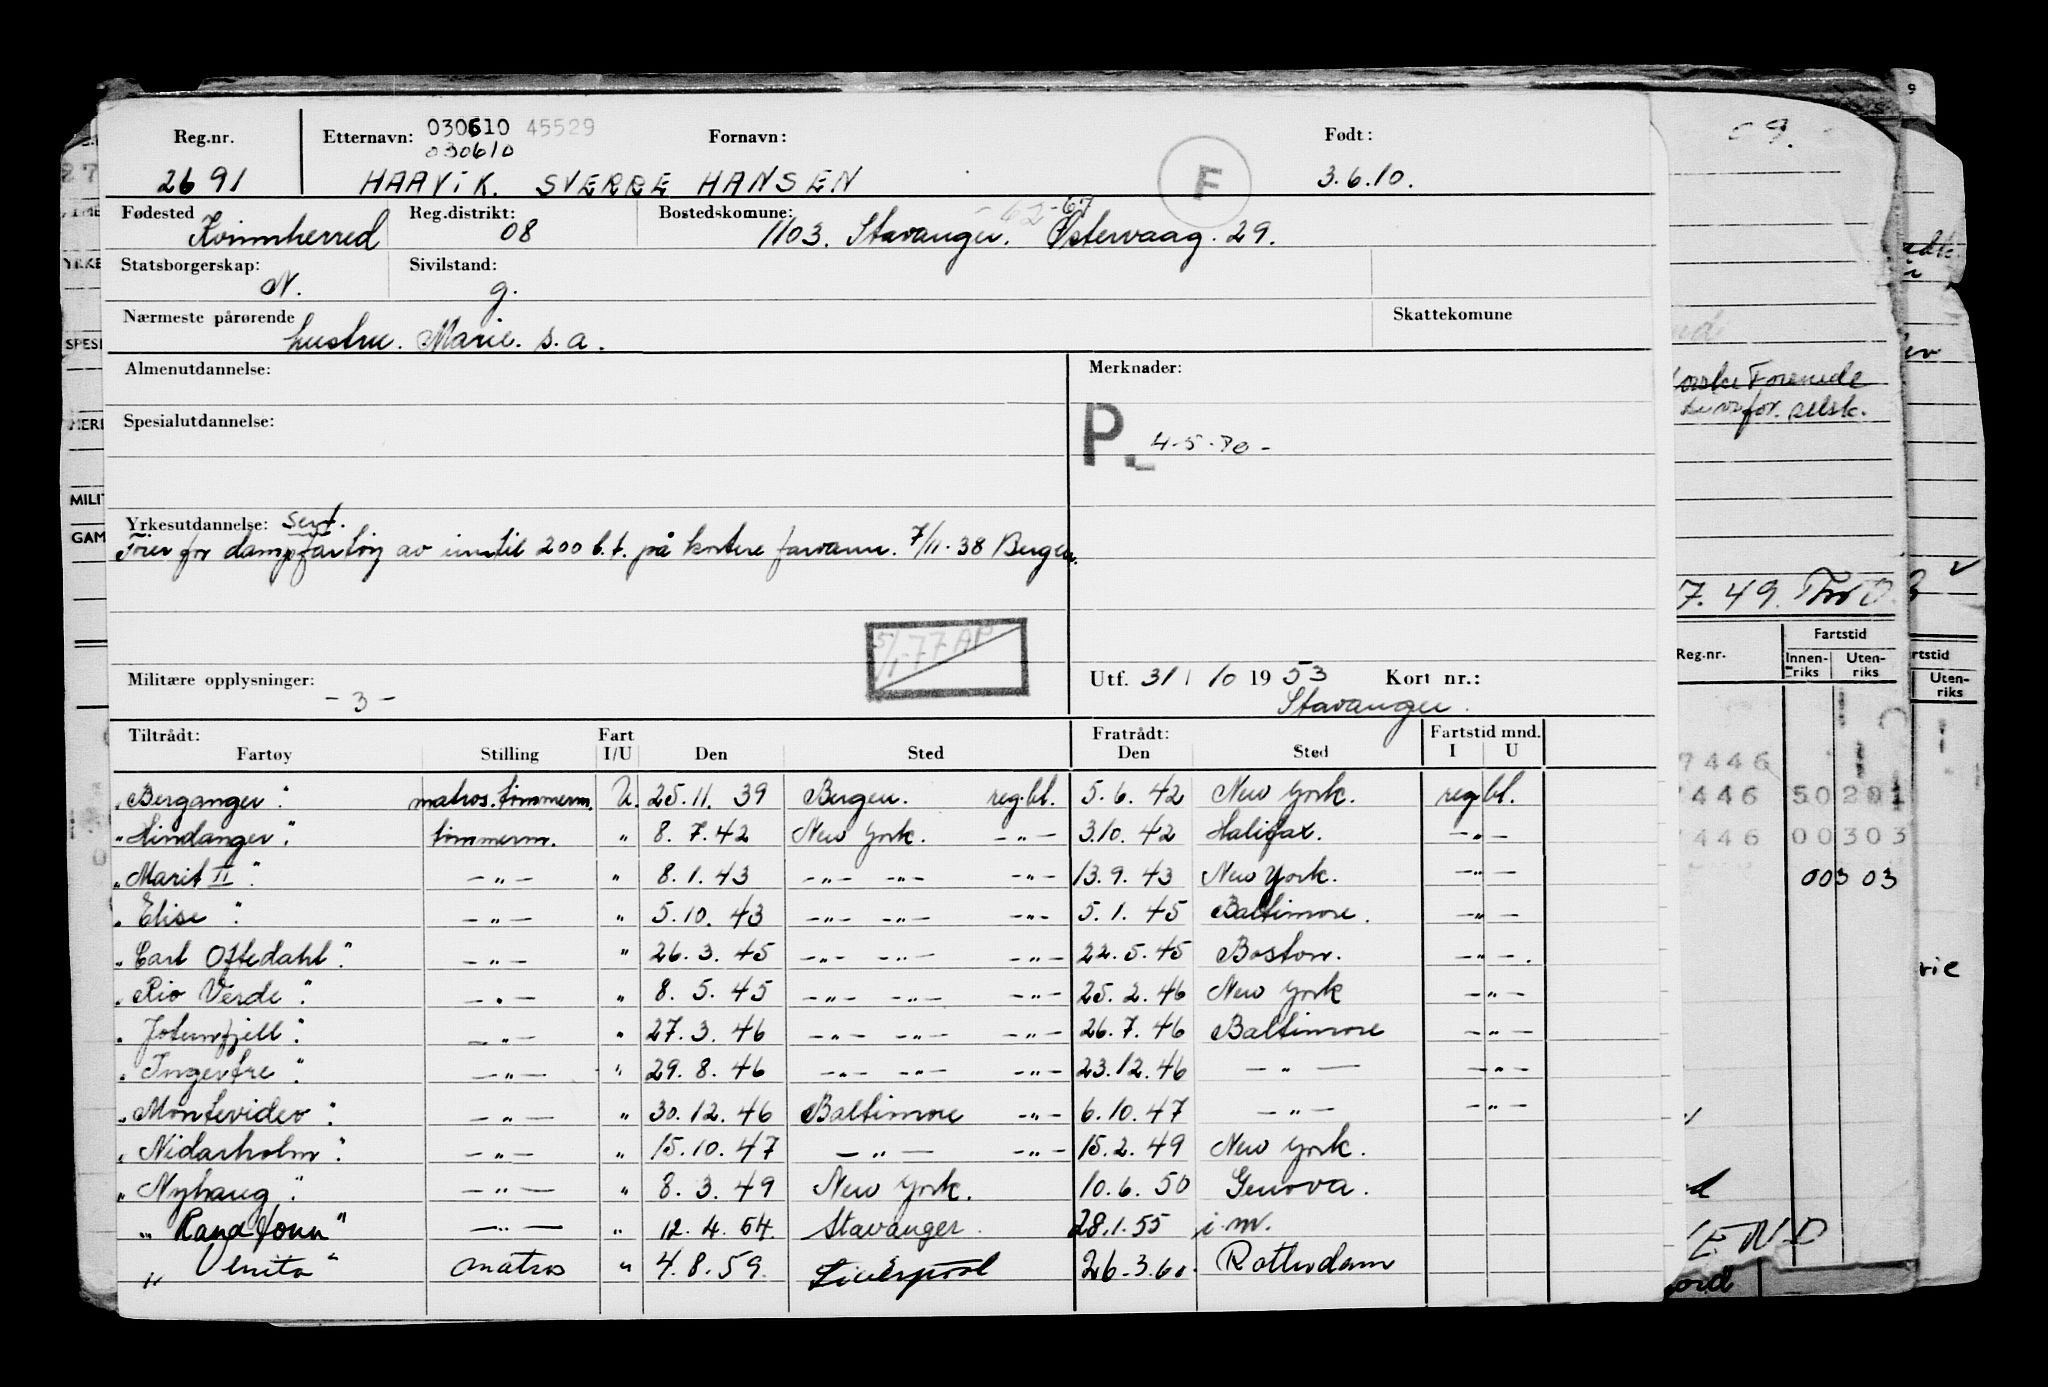 Reg.nr. Etternavn: 030610 45529 Fornavn: Født:
030610
2691 HAAVIK. SVERRE HANSEN F 3.6.10.
Fødested Reg.distrikt: Bostedskomune: 62-67
Kvinnherred 08 1103. Stavanger. Østervaag. 29.
Statsborgerskap: Sivilstand:
N. g.
Nærmeste pårørende Skattekomune
hustru. Marie. s.a.
Almenutdannelse: Merknader:
Spesialutdannelse:
P. 4-5-70-
Yrkesutdannelse: sert.
Fører for dampfartøy av inntil 200 b.t. på kortere farvann. 7/11-38 Bergen.
5/1-77 AP
Militære opplysninger: Utf. 31/10 1953 Kort nr.:
-3- Stavanger.
Tiltrådt: Fart Fratrådt: Fartstid mnd.
Fartøy Stilling I/U Den Sted Den Sted I U
"Berganger". matros. tømmerm. U. 25.11.39 Bergen. reg.bl. 5.6.42 New York. reg.bl.
"Lindanger". tømmerm. " 8.7.42 New York -"- 3.10.42 Halifax. -"-
"Marit II". -"- " 8.1.43 -"- -"- -"- 13.9.43 New York. -"-
"Elise". -"- " 5.10.43 -"- -"- -"- 5.1.45 Baltimore. -"-
"Carl Oftedahl". -"- " 26.3.45 -"- -"- -"- 22.5.45 Boston. -"-.
"Rio Verde". -"- " 8.5.45 -"- -"- -"- 25.2.46 New York -"-
"Jotunfjell". -"- " 27.3.46 -"- -"- -"- 26.7.46 Baltimore -"-
"Ingerfre". -"- " 29.8.46 -"- -"- -"- 23.12.46 -"- -"-
"Montevideo". -"- " 30.12.46 Baltimore -"- 6.10.47 -"- -"-
"Nidarholm". -"- " 15.10.47 -"- -"- 15.2.49 New York.
"Nyhaug". -"- " 8.3.49 New York. 10.6.50 Genova.
"Randfonn" -"- " 12.4.54. Stavanger. 28.1.55 i.m.
"Unita" matros " 4.8.59. Liverpool 26.3.60. Rotterdam
27
YRKE
SPESI
MILIT
GAM
09.
norske Forenede
Livsfor. selsk.
7.49.
Fartstid
Reg.nr. Innen-riks Uten-riks
7446
7446 50201
7446 00303
003 03
rtstid
Uten-riks